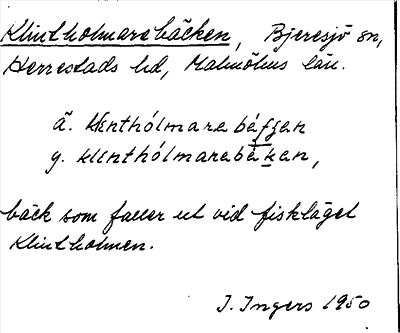 Klintholmarebäcken, Bjeresjö sn,
Herrestads hd, Malmöhus län.
ä. klinthólmarebäkjen
y. klinthólmarebäken,
bäck som faller ut vid fiskläget
Klintholmen.
I. Ingers 1950